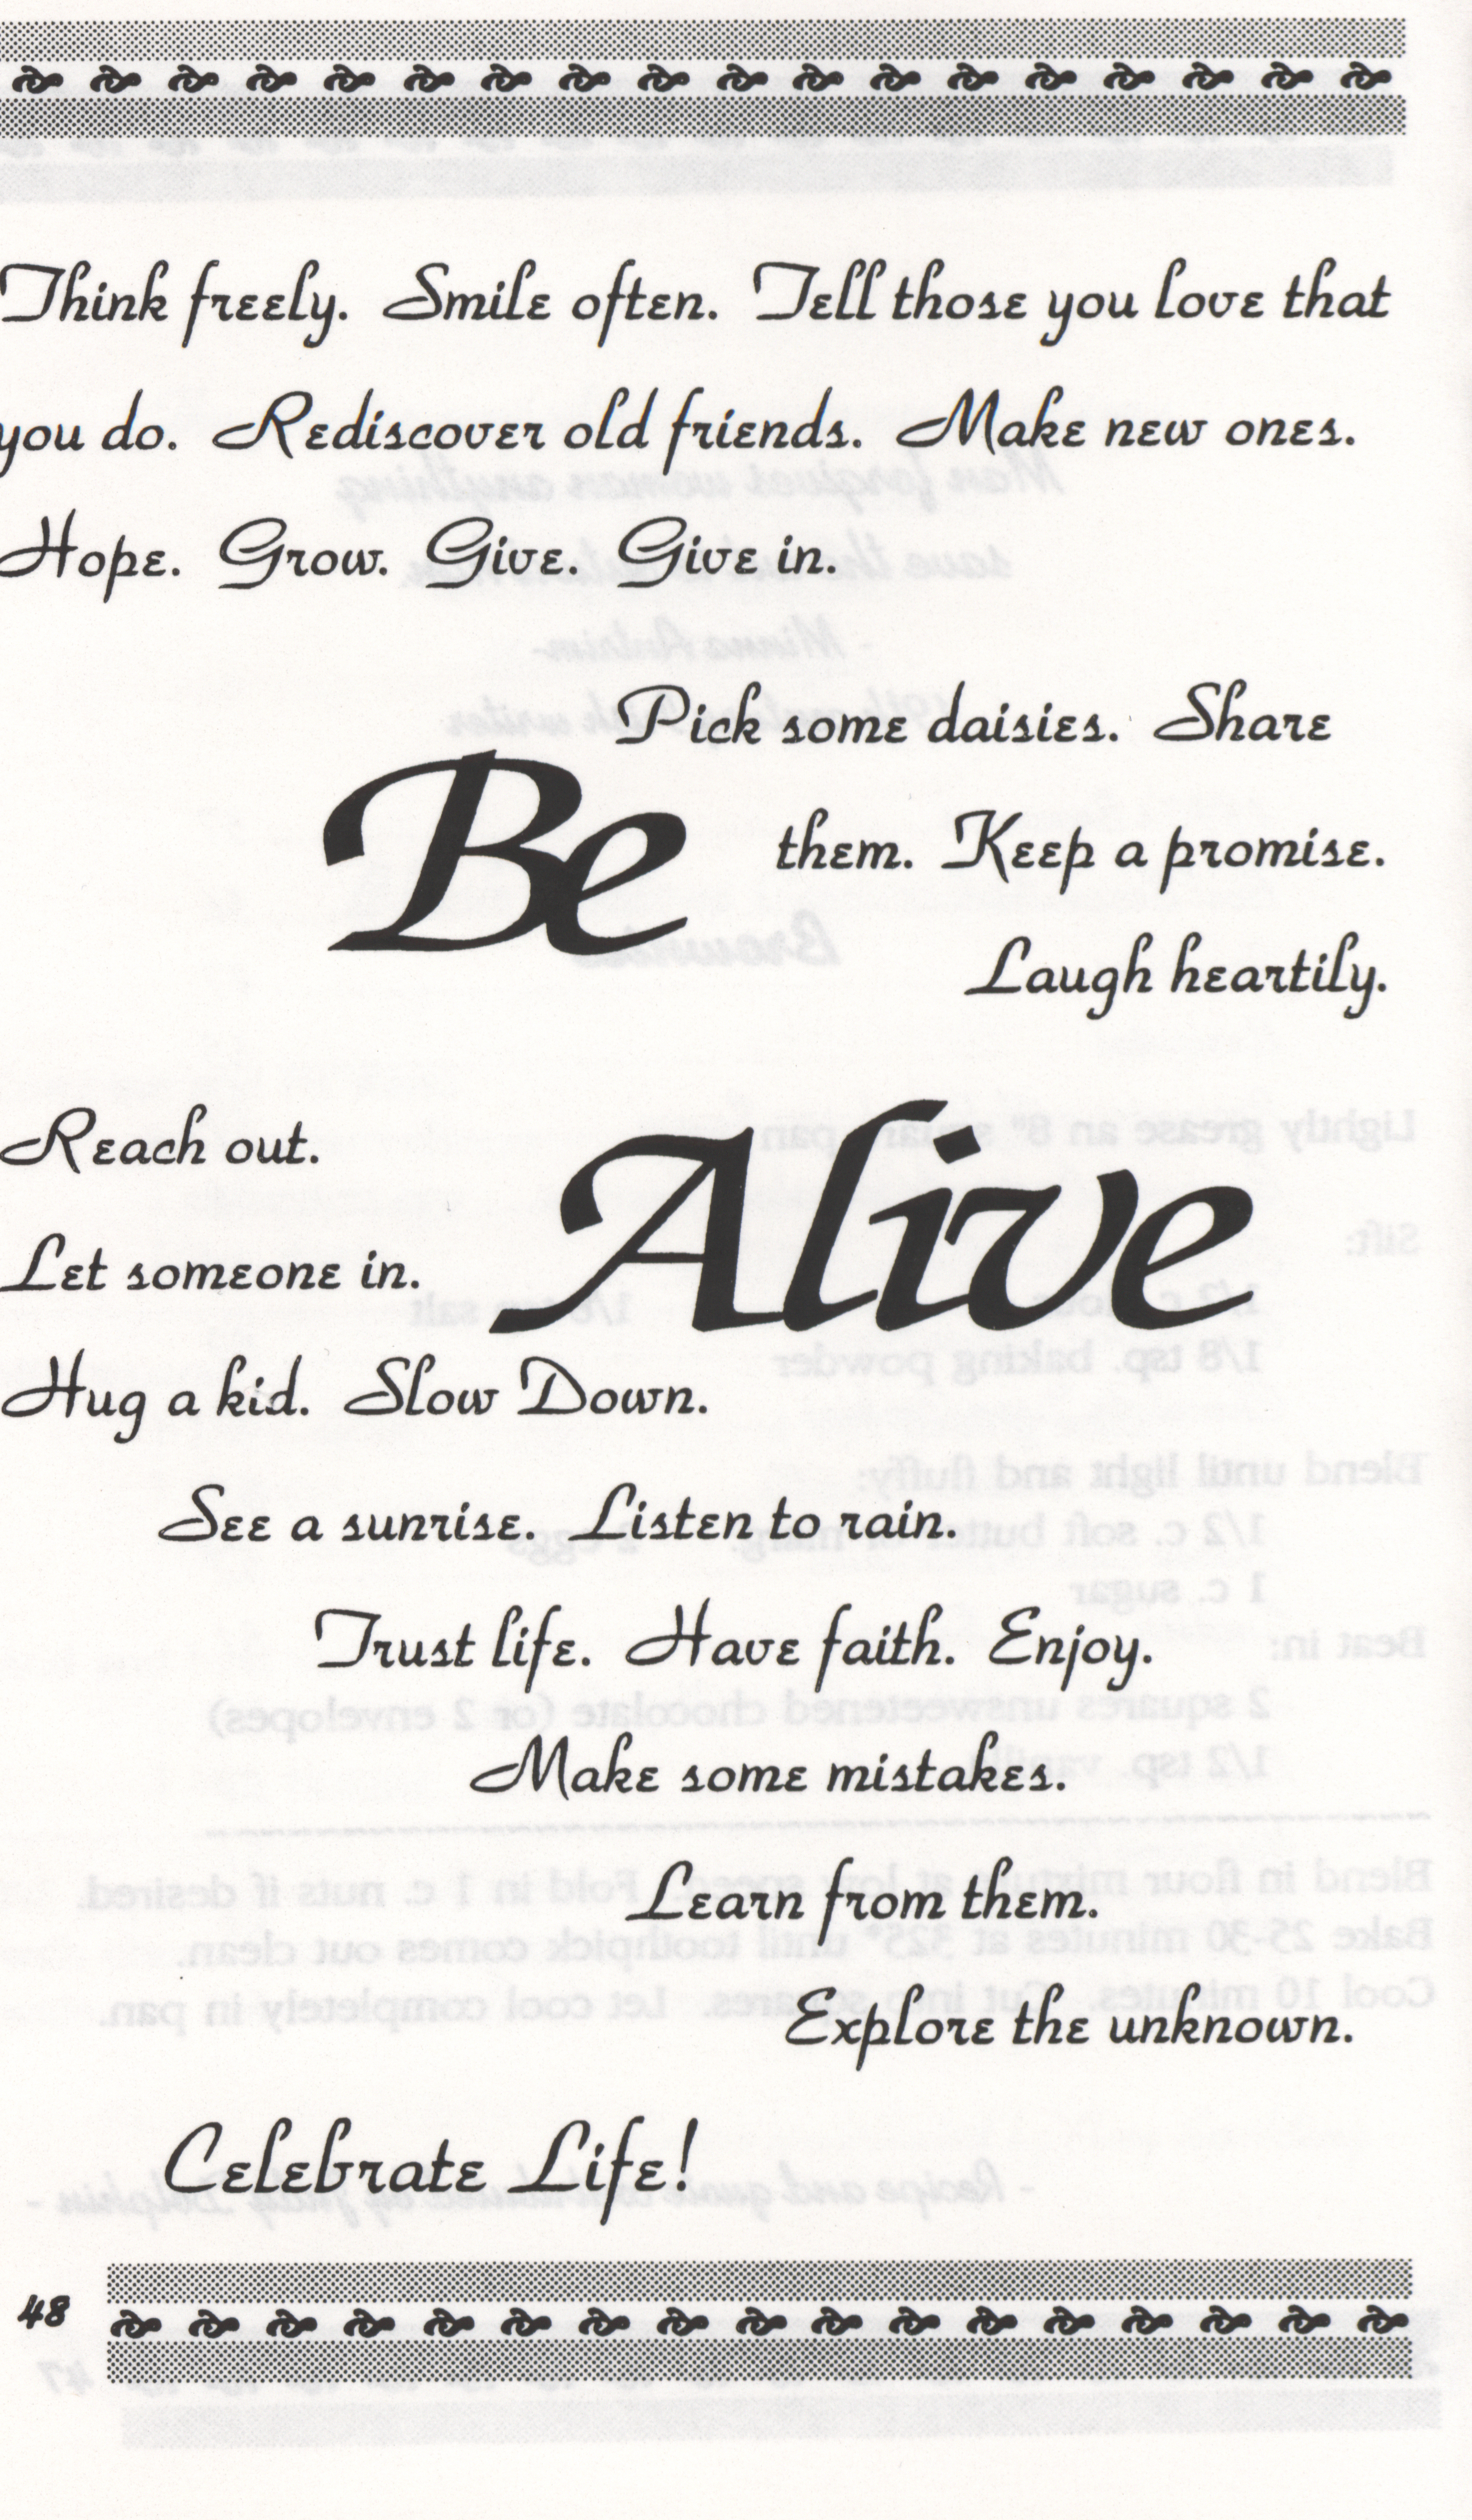 Think freely. Smile often. Tell those you love that
you do. Rediscover old friends. Make new ones.
Hope. Grow. Give. Give in.
Pick some daisies. Share
Be
them. Keep a promise.
Laugh heartily.
Reach out.
Alive
Let someone in.
Hug a kid. Slow Down.
See a sunrise. Listen to rain.
Trust life. Have faith. Enjoy.
Make some mistakes.
Learn from them.
Explore the unknown.
Celebrate Life!
48